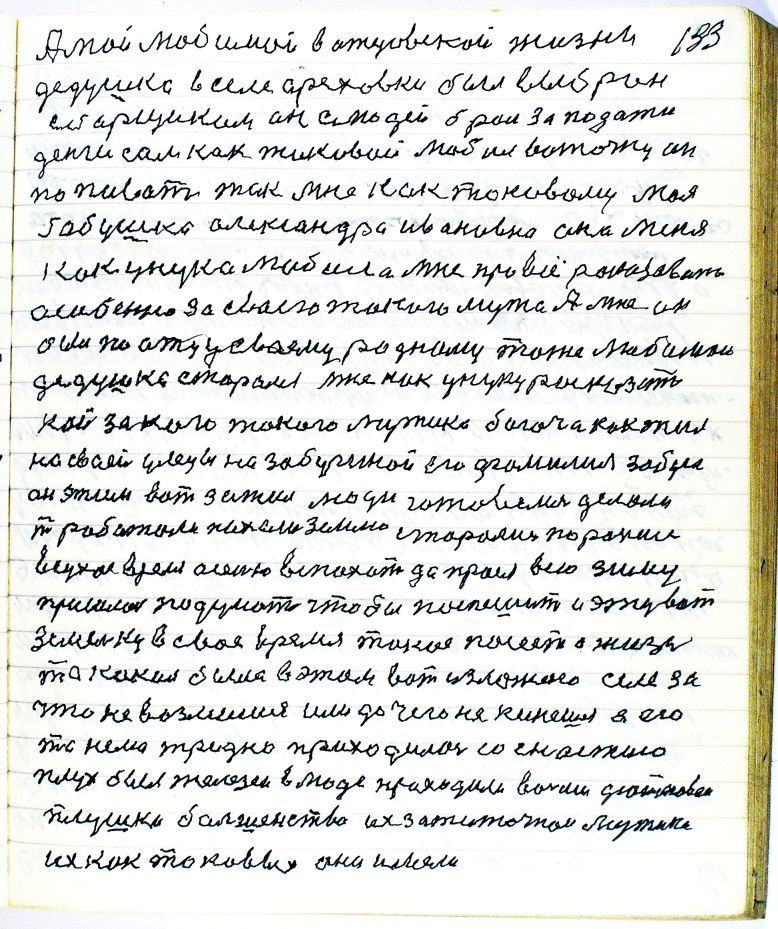 А мой любимой в отцовской жизни 133
дедушка в селе ореховки был выбран
старщиком он с людей брал за подати
денги сам как таковой любил вотожу он
попивать так мне как токовому моя
бабушка олександра ивановна она меня
как унука любила мне про всё росказвать
особенно за своего такого мужа А мне он
был по отцу своему родному тоже любимой
дедушка старался мне как унуку росказать
кой за кого такого мужика богоча как жил
на своей улецы на забугиной его фамилия забуга
он этим вот зажил люди готовелися делали
работали пахали землю старались пораньше
в сухое время осеню вспохат да
пришлось подумат чтобы поспешит и эту вот
землянку в своё время такое посеет а жизн
то какая была в этом вот изложено селе за
что не возмешся или до чего не кинешся а его
то нема трудно приходилося со снастию
плуг был железен в моде проходили
плушки балшенство их зажиточнои мужики
их как таковых они имели